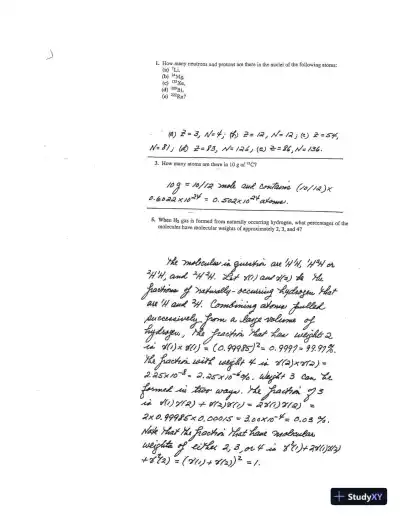 1. How many neutrons and protons are there in the nuclei of the following atoms:
(a) ⁷Li,
(b) ²⁴Mg,
(c) ¹³⁵Xe,
(d) ²⁰⁹Bi,
(e) ²²²Rn?
(a) Z=3, N=4; (b) Z=12, N=12; (c) Z=54,
N=81; (d) Z=83, N=126; (e) Z=86, N=136.
3. How many atoms are there in 10 g of ¹²C?
10 g = 10/12 mole and contains (10/12)×
0.6022×10²⁴ = 0.502×10²⁴ atoms.
5. When H₂ gas is formed from naturally occurring hydrogen, what percentages of the
molecules have molecular weights of approximately 2, 3, and 4?
The molecules in question are ¹H¹H, ¹H²H or
²H¹H, and ²H²H. Let γ(1) and γ(2) be the
fractions of naturally-occuring hydrogen that
are ¹H and ²H. Combining atoms pulled
successively from a large volume of
hydrogen, the fraction that has weight 2
is γ(1)×γ(1) = (0.99985)² = 0.9997 = 99.97%.
The fraction with weight 4 is γ(2)×γ(2) =
2.25×10⁻⁸ = 2.25×10⁻⁶%. Weight 3 can be
formed in two ways. The fraction of 3
is γ(1)γ(2) + γ(2)γ(1) = 2γ(1)γ(2) =
2×0.99985×0.00015 = 3.00×10⁻⁴ = 0.03%.
Note that the fraction that have molecular
weights of either 2, 3, or 4 is γ²(1)+2γ(1)γ(2)
+γ²(2) = (γ(1)+γ(2))² = 1.
StudyXY